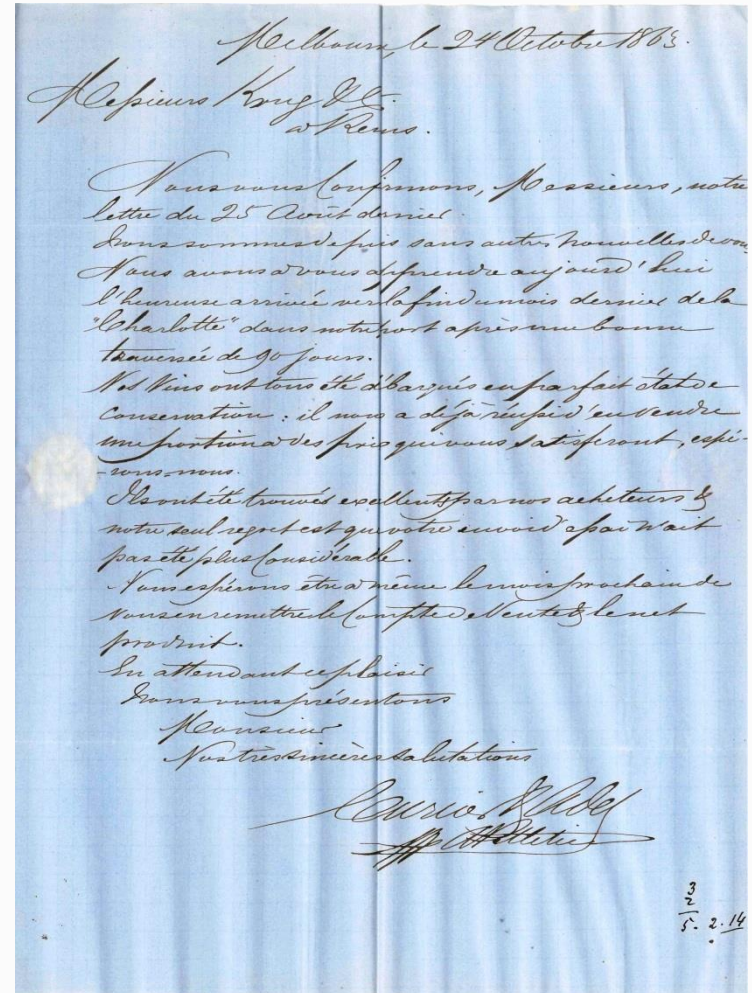 Melbourne, le 24 Octobre 1863.
Messieurs Krug & Co.
a Reims.
Nous vous Confirmons, Messieurs, notre
lettre du 25 Août dernier.
Nous sommes depuis sans autres Nouvelles de vous.
Nous avons a vous apprendre aujourd'hui
l'heureuse arrivée vers la fin du mois dernier de la
"Charlotte" dans notre port après une bonne
traversée de 90 jours.
Vos Vins ont tous été débarqués en parfait état de
conservation : il nous a déjà réussi d'en vendre
une portion a des prix qui vous satisferont, espé-
-rons-nous.
Ils ont été trouvés excellents par nos acheteurs &
notre seul regret est que votre envoi d'essai n'ait
pas été plus Considérable.
Nous espérons être a même le mois prochain de
vous en remettre le Compte de Vente & le net
produit.
En attendant ce plaisir
Nous vous présentons
Messieurs
Nos très sincères salutations
Pelletier
3
2
5. 2.14